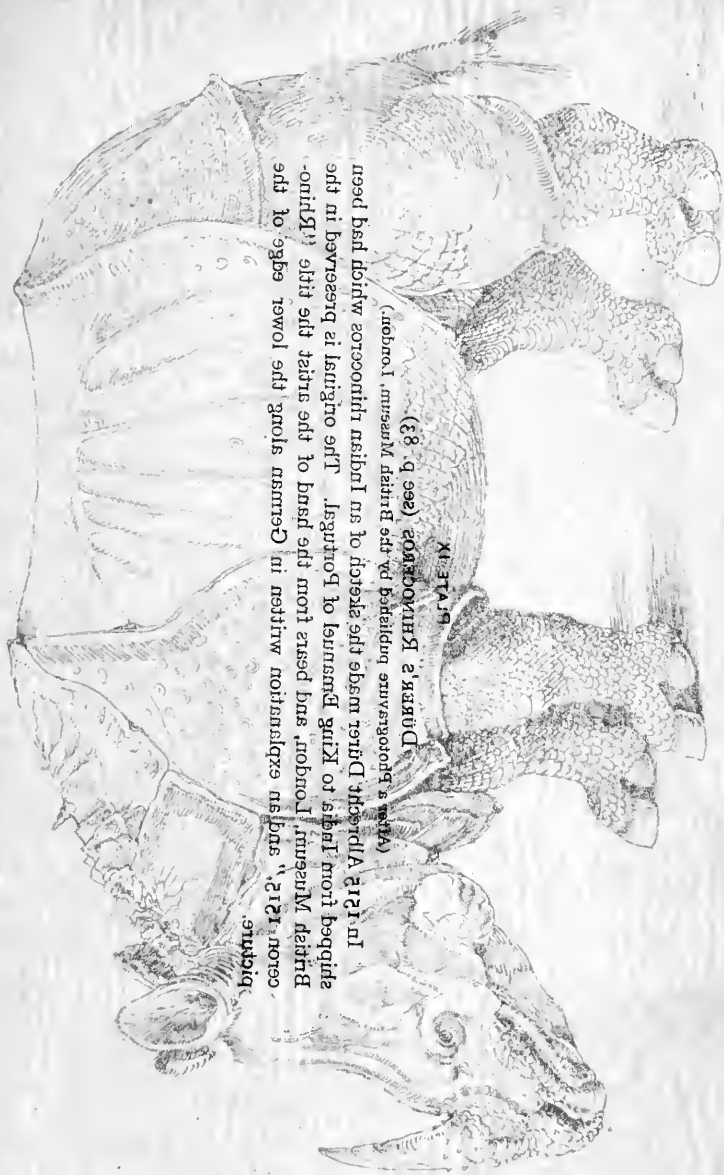 PLATE IX
DÜRER'S RHINOCEROS (see p. 83).
(After a Photogravure published by the British Museum, London.)
In 1515 Albrecht Dürer made the sketch of an Indian rhinoceros which had been
shipped from India to King Emanuel of Portugal. The original is preserved in the
British Museum, London, and bears from the hand of the artist the title "Rhino-
ceron 1515," and an explanation written in German along the lower edge of the
picture.